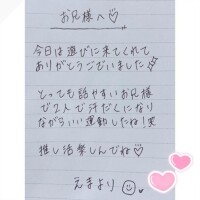 お兄様へ♡
今日は遊びに来てくれて
ありがとうございました!
とっても話やすいお兄様
で2人で汗だくになり
ながらいい運動したね!笑
推し活楽しんでね♡
えまより